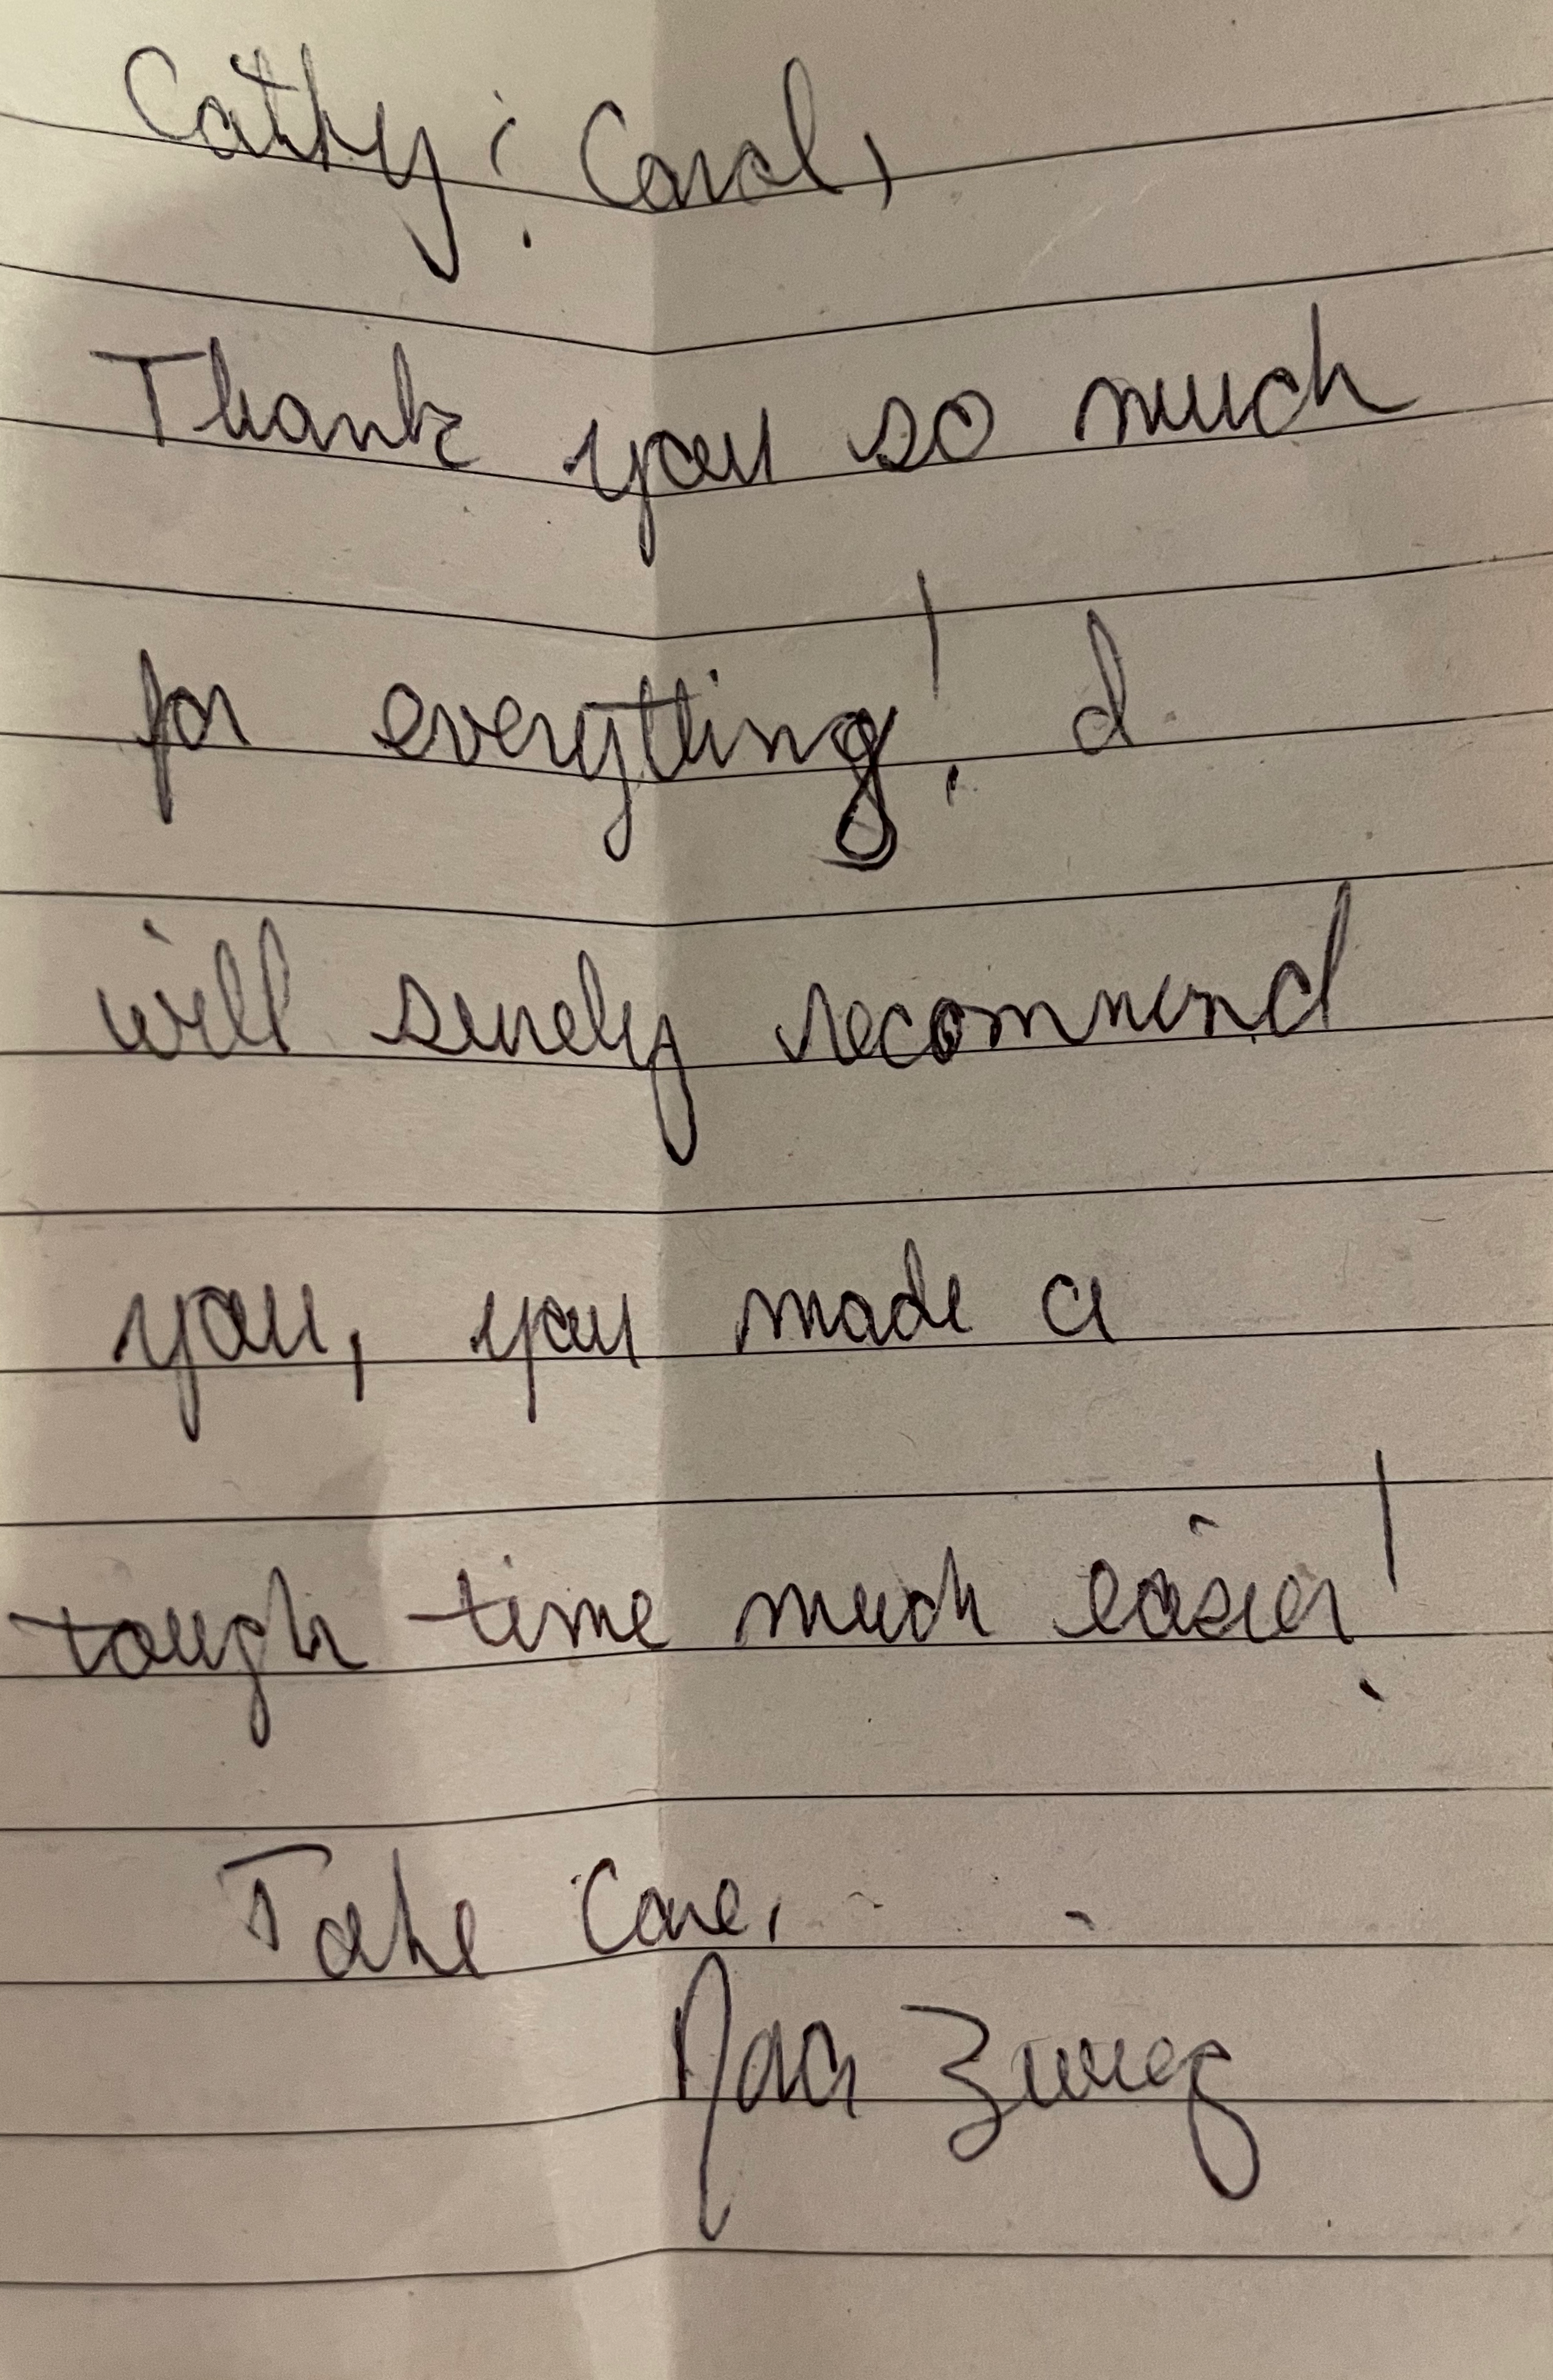 Cathy & Carol,
Thank you so much
for everything! I
will surely recommend
you, you made a
tough time much easier!
Take Care,